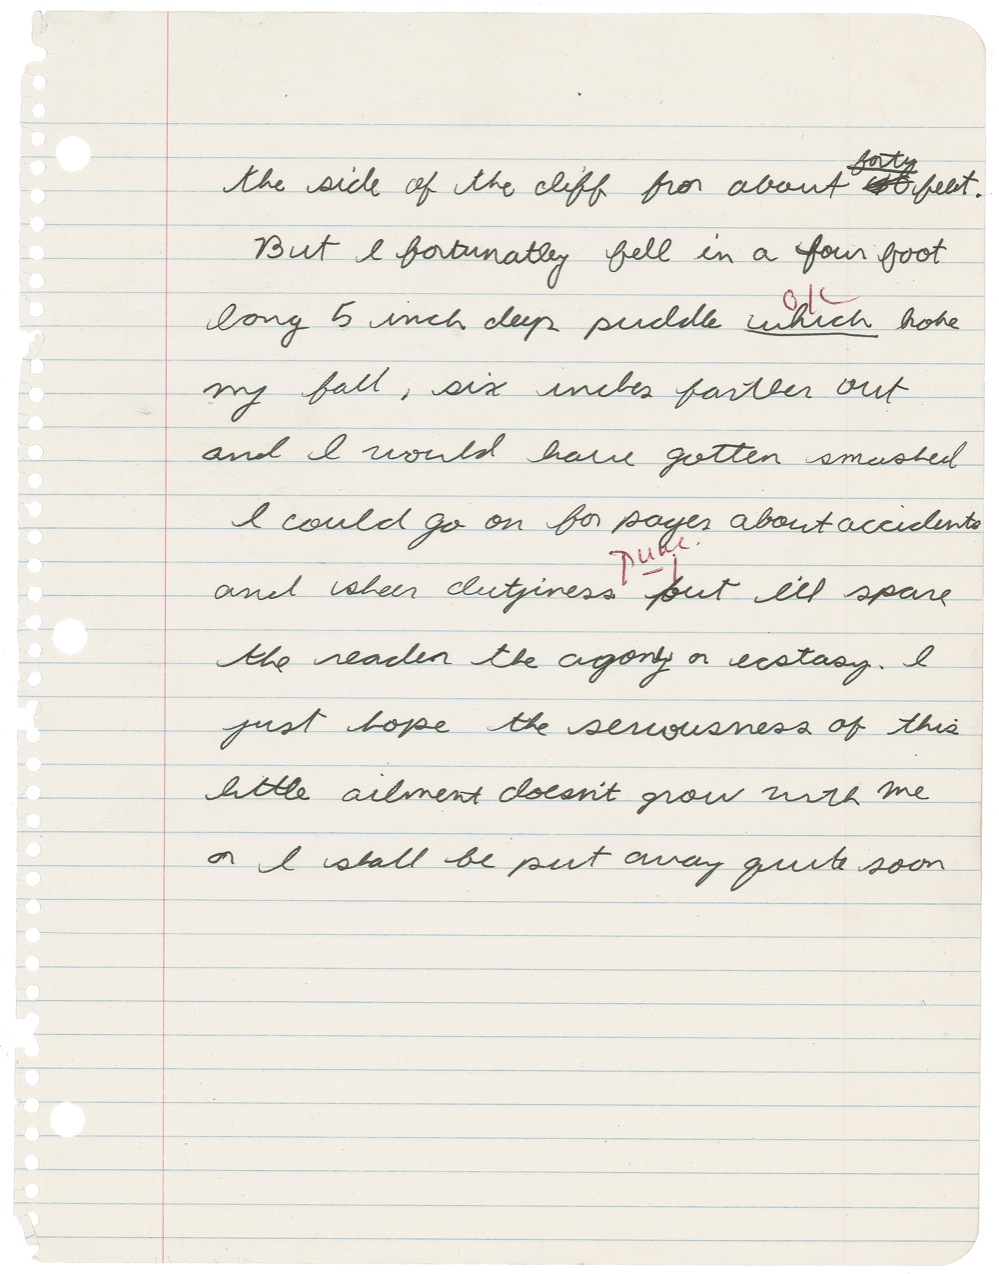 forty
the side of the cliff fro about feet.
But I fortunatley fell in a four foot
o/c
long 5 inch deep puddle which
my fall, six inches farther out
and I would have gotten smashed
I could go on for pages about accidents
punc.
and sheer clutziness but I'll spare
the reader the agony or ecstasy. I
just hope the seriousness of this
little ailment doesn't grow with me
or I shall be put away quite soon